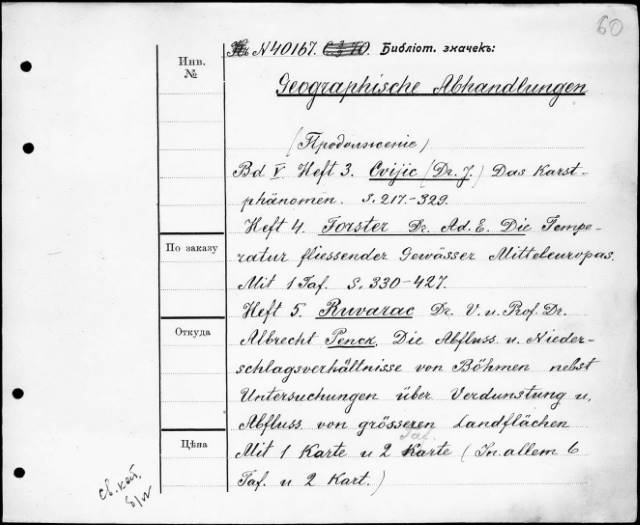 60
N40167. Библіот. значекъ:
Инв. №
Geographische Abhandlungen
(Продолженіе)
Bd V Heft 3. Cvijic (Dr. J.) Das Karst-
phänomen. S. 217.-329.
Heft 4. Forster Dr. Ad. E. Die Tempe-
ratur fliessender Gewässer Mitteleuropas.
Mit 1 Taf. S. 330-427.
Heft 5. Ruvarac Dr. V. u. Prof. Dr.
Albrecht Penck. Die Abfluss. u. Nieder-
schlagsverhältnisse von Böhmen nebst
Untersuchungen über Verdunstung u.
Abfluss. von grösseren Landflächen
Taf.
Mit 1 Karte u 2 Karte (In allem 6
Taf. u 2 Kart.)
По заказу
Откуда
Цѣна
св. кат.